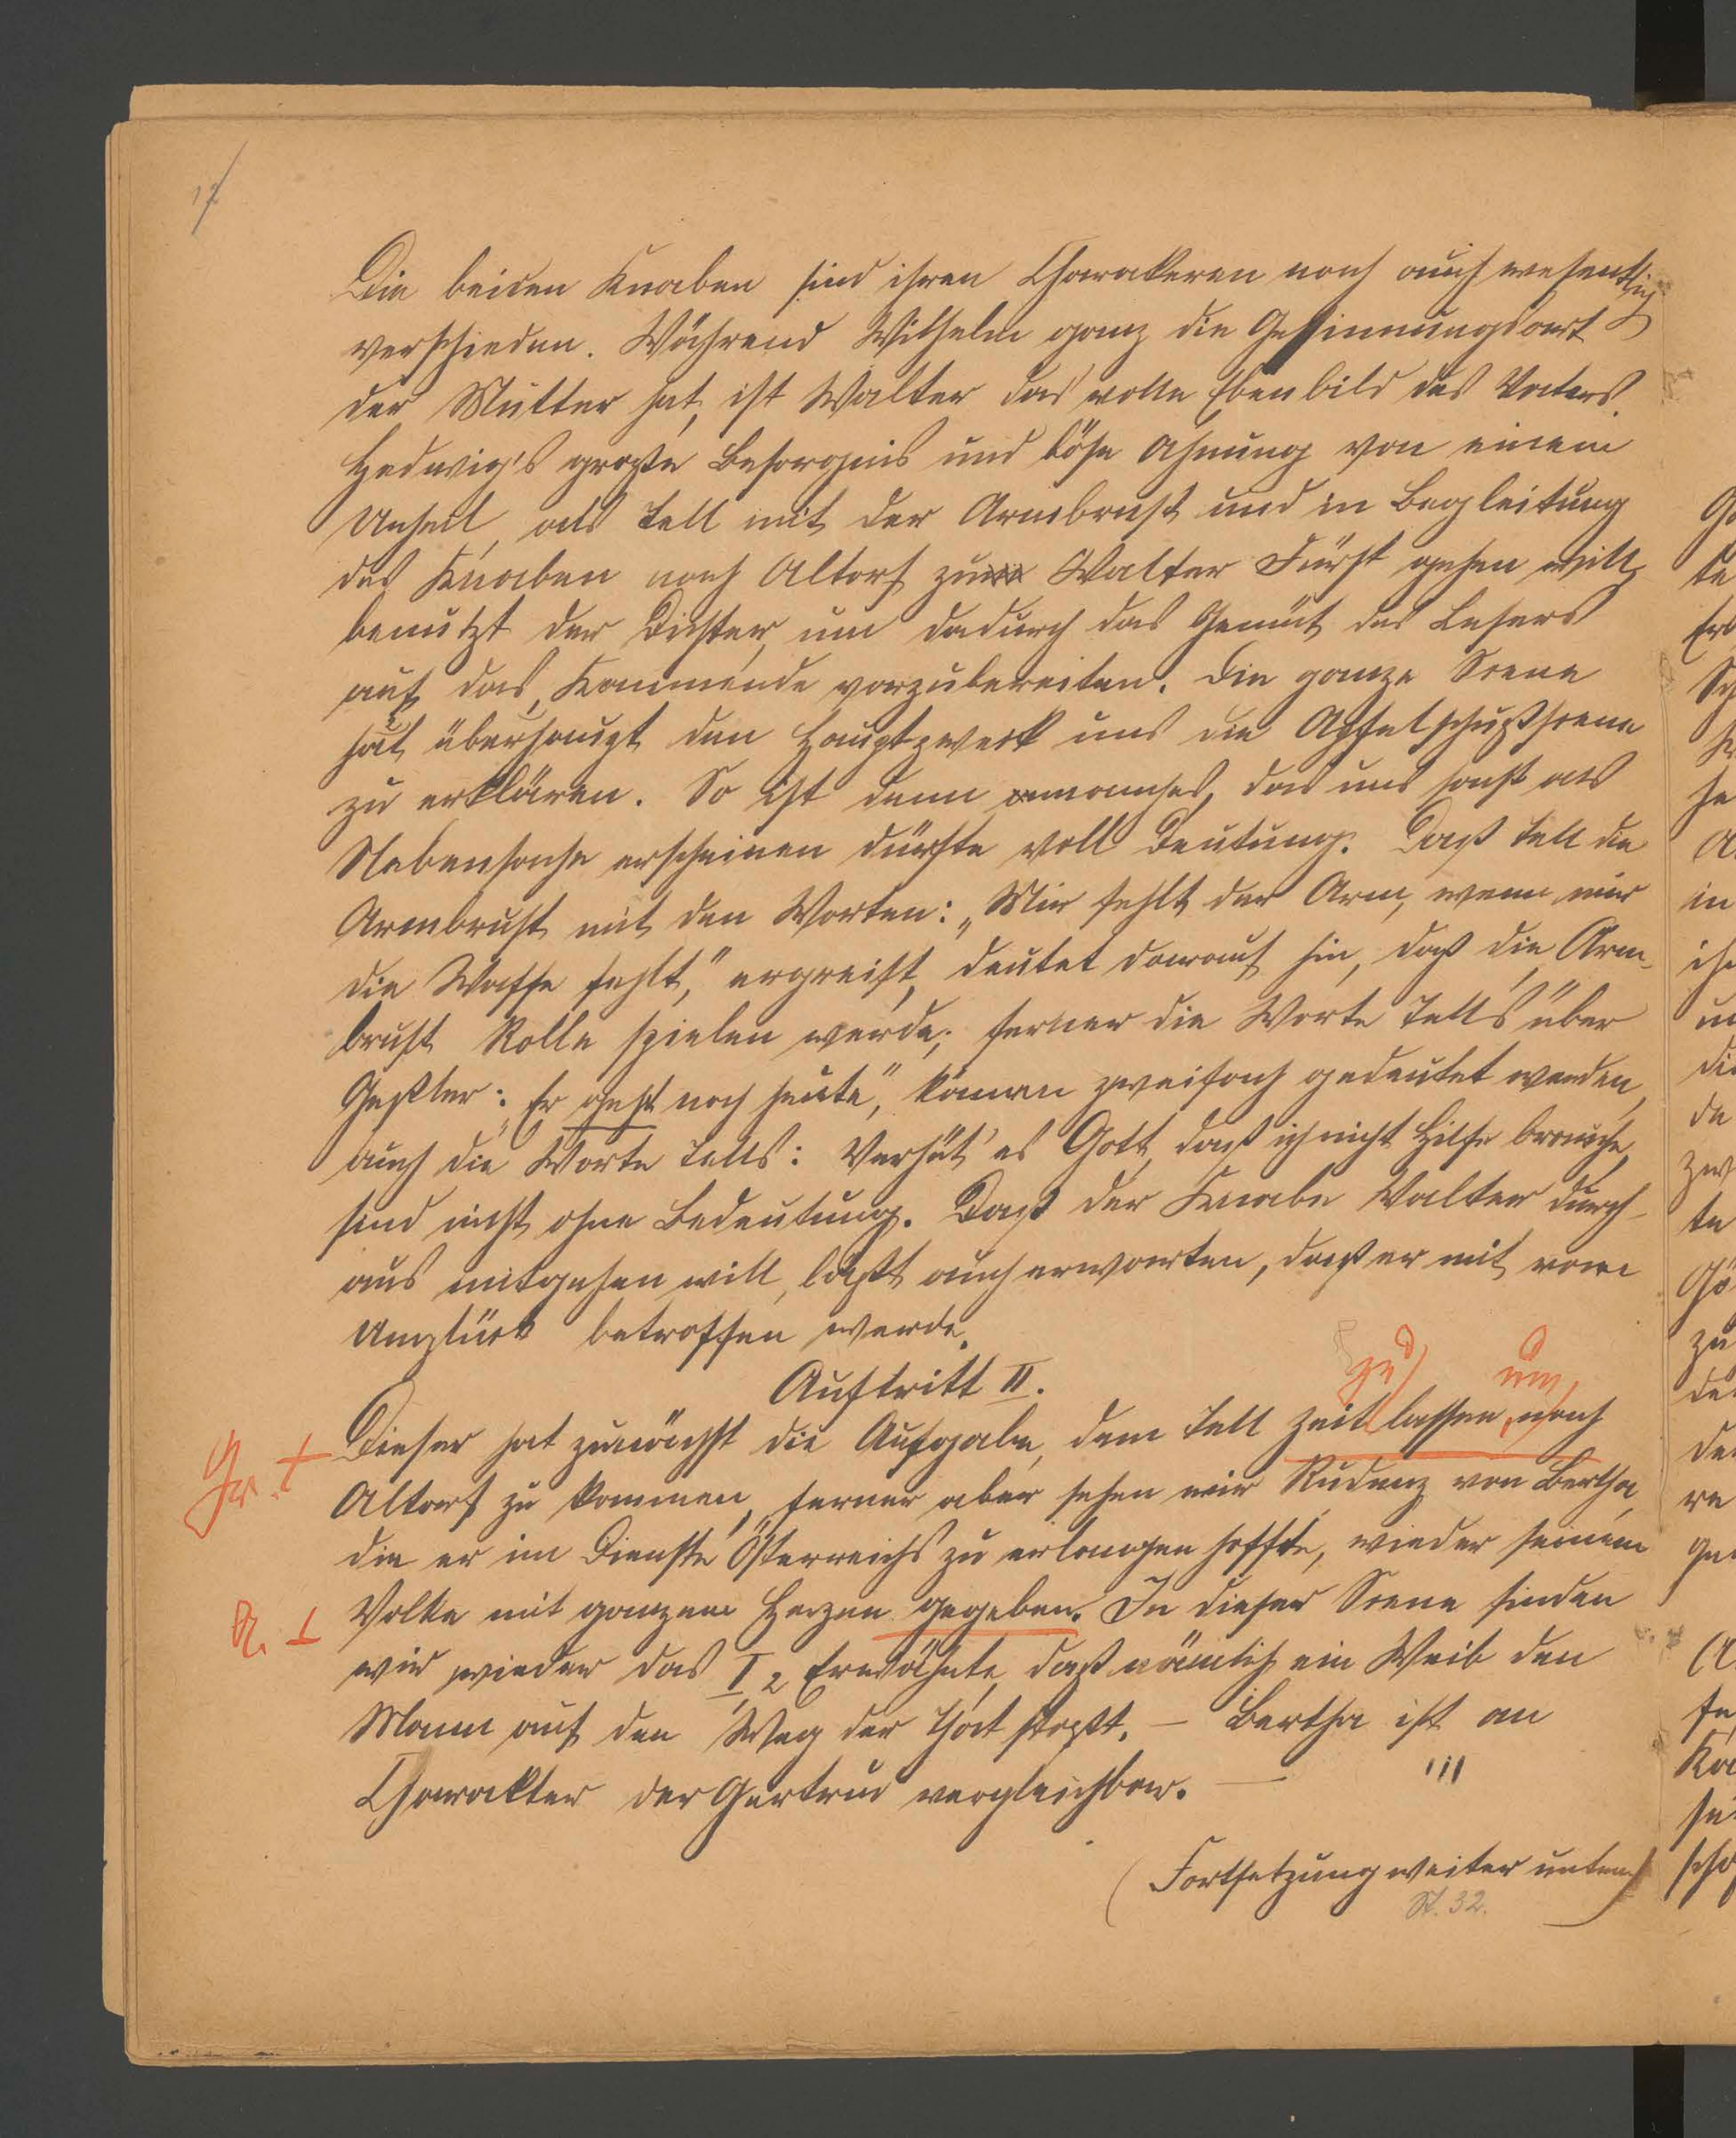 17
Die beiden Knaben sind ihren Charakeren nach auch wesentlich
verschieden. Während Wilhelm ganz die Gesinnungsart
der Mutter hat, ist Walter das volle Ebenbild des Vaters.
Hedwig's große Besorgnis und böse Ahnung von einem
Unheil, als Tell mit der Armbrust und in Begleitung
des Knaben nach Altorf zum Walter Fürst gehen will,
benützt der Dichter, um dadurch das Gemüt des Lesers
auf das Kommende vorzubereiten. Die ganze Scene
hat überhaupt den Hauptzweck uns die Apfelschußscene
zu erklären. So ist denn manches, das uns sonst als
Nebensache erscheinen dürfte voll Deutung. Daß Tell die
Armbrust mit den Worten: „Mir fehlt der Arm, wenn mir
die Waffe fehlt," ergreift, deutet darauf hin, daß die Arm-
brust Rolle spielen werde; ferner die Worte Tell's über
Geßler: „Er geht noch heute", können zweifach gedeutet werden,
auch die Worte Tells: Verhüt' es Gott, daß ich nicht Hilfe brauche,
sind nicht ohne Bedeutung. Daß der Knabe Walter durch-
aus mitgehen will, läßt auch erwarten, daß er mit vom
Unglück betroffen werde.
Auftritt II.
zu um
Dieser hat zunächst die Aufgabe, dem Tell Zeit lassen, nach
Gr. +
Altorf zu kommen, ferner aber sehen wir Rudenz von Bertha,
die er im Dienste Österreichs zu erlangen hoffte, wieder seinem
Volke mit ganzem Herzen gegeben. In dieser Scene finden
wir wieder das I 2 Erwähnte, daß nämlich ein Weib den
Mann auf den Weg der That stoßt. – Bertha ist an
Charakter der Gertrud vergleichbar. –
(Fortsetzung weiter unten)
St. 32.